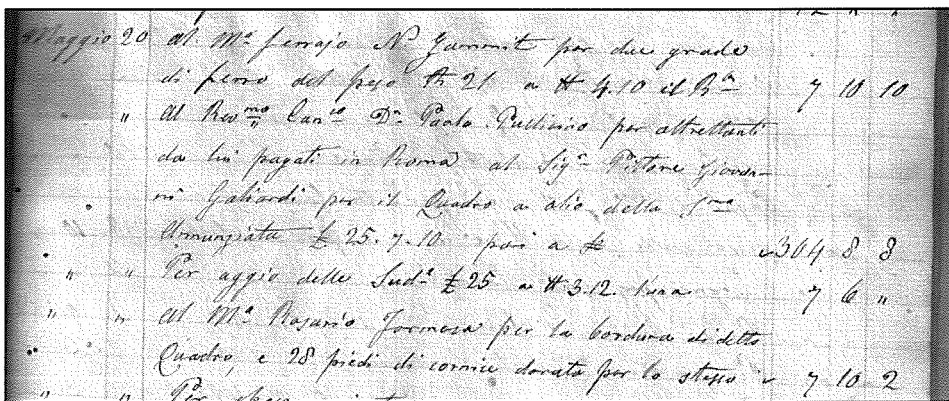 Maggio 20 al Mo. ferrajo No. Zammit per due grade
di ferro del peso 21 a 4.10 il 7 10 10
" Al Revmo Canco Dn. Paolo Pullicino per altrettanti
da lui pagati in Roma al Sigr. Pittore Giovan-
ni Galiardi per il Quadro a olio della Sma
Annunziata £ 25.7.10 pari a 304 8 8
" " Per aggio delle Sudte £ 25 a 3.12 l'una 7 6 "
" " Al Mo. Rosario Formosa per la bordura di detto
Quadro, e 28 piedi di cornice dorata per lo stesso 7 10 2
" " Per